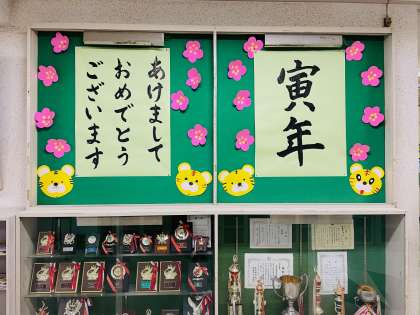 あけまして
おめでとう
ございます
寅年